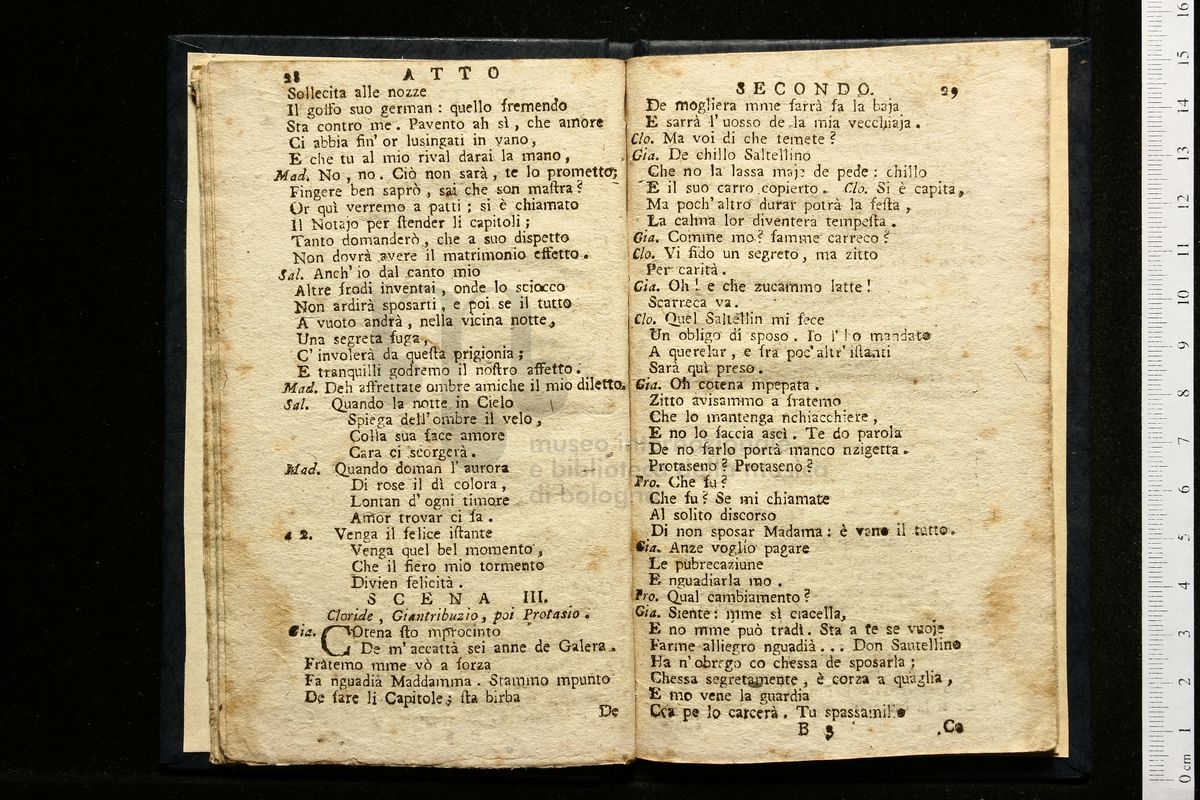 28 ATTO
Sollecita alle nozze
Il goffo suo german : quello fremendo
Sta contro me . Pavento ah sì , che amore
Ci abbia fin' or lusingati in vano ,
E che tu al mio rival darai la mano ,
Mad. No , no . Ciò non sarà , te lo prometto;
Fingere ben saprò , sai che son maſtra ?
Or quì verremo a patti ; si è chiamato
Il Notajo per ſtender li capitoli ;
Tanto domanderò , che a suo dispetto
Non dovrà avere il matrimonio effetto .
Sal. Anch' io dal canto mio
Altre frodi inventai , onde lo sciocco
Non ardirà sposarti , e poi se il tutto
A vuoto andrà , nella vicina notte ,
Una segreta fuga ,
C' involerà da queſta prigionia ;
E tranquilli godremo il noſtro affetto .
Mad. Deh affrettate ombre amiche il mio diletto.
Sal. Quando la notte in Cielo
Spiega dell' ombre il velo ,
Colla sua face amore
Cara ci scorgerà .
Mad. Quando doman l' aurora
Di rose il dì colora ,
Lontan d' ogni timore
Amor trovar ci fa .
a 2. Venga il felice iſtante
Venga quel bel momento ,
Che il fiero mio tormento
Divien felicità .
SCENA III.
Cloride , Giantribuzio , poi Protasio .
Gia. COtena ſto mprocinto
De m' accattà sei anne de Galera .
Fratemo mme vò a forza
Fa nguadià Maddamma . Stammo mpunto
De fare li Capitole ; ſta birba
De
SECONDO. 29
De mogliera mme farrà fa la baja
E sarrà l' uosso de la mia vecchiaja .
Clo. Ma voi di che temete ?
Gia. De chillo Saltellino
Che no la lassa maje de pede : chillo
E il suo carro copierto . Clo. Si è capita ,
Ma poch' altro durar potrà la feſta ,
La calma lor diventerà tempeſta .
Gia. Comme mo ? famme carreco ?
Clo. Vi fido un segreto , ma zitto
Per carità .
Gia. Oh ! e che zucammo latte !
Scarreca va .
Clo. Quel Saltellin mi fece
Un obligo di sposo . Io l' ho mandato
A querelar , e fra poc' altr' iſtanti
Sarà quì preso .
Gia. Oh cotena mpepata .
Zitto avisammo a fratemo
Che lo mantenga nchiacchiere ,
E no lo faccia ascì . Te do parola
De no farlo portà manco nzigetta .
Protaseno ? Protaseno ?
Pro. Che fu ?
Che fu ? Se mi chiamate
Al solito discorso
Di non sposar Madama : è vano il tutto .
Gia. Anze voglio pagare
Le pubrecaziune
E nguadiarla mo .
Pro. Qual cambiamento ?
Gia. Siente : mme sì ciacella,
E no mme può tradì . Sta a te se vuoje
Farme alliegro nguadià . . . Don Santellino
Ha n' obrego co chessa de sposarla ;
Chessa segretamente , è corza a quaglia ,
E mo vene la guardia
Cca pe lo carcerà . Tu spassamillo
B 3 Co
museo internazionale
e biblioteca della musica
di bologna
16
15
14
13
12
11
10
9
8
7
6
5
4
3
2
1
0 cm